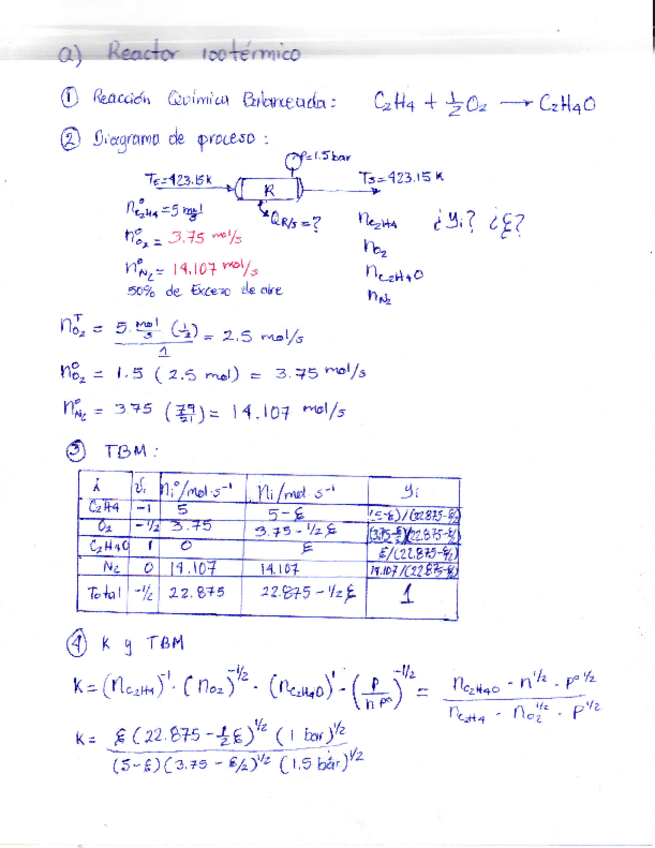 a) Reactor isotérmico
① Reacción Química Balanceada: C2H4 + 1/2 O2 → C2H4O
② Diagrama de proceso:
P=1.5 bar
TE=423.15K R TS=423.15 K
n°C2H4=5 mol/s QR/S=? nC2H4 ¿yi? ¿ξ?
n°O2 = 3.75 mol/s nO2
n°N2 = 14.107 mol/s nC2H4O
50% de Exceso de aire nN2
n^T O2 = 5 mol/s (1/2) / 1 = 2.5 mol/s
n°O2 = 1.5 (2.5 mol) = 3.75 mol/s
n°N2 = 3.75 (79/21) = 14.107 mol/s
③ TBM:
i νi ni°/mol·s⁻¹ ni/mol·s⁻¹ yi
C2H4 -1 5 5-ξ (5-ξ)/(22.875-ξ/2)
O2 -1/2 3.75 3.75-1/2ξ (3.75-ξ/2)/(22.875-ξ/2)
C2H4O 1 0 ξ ξ/(22.875-ξ/2)
N2 0 14.107 14.107 14.107/(22.875-ξ/2)
Total -1/2 22.875 22.875-1/2ξ 1
④ K y TBM
K=(nC2H4)^-1 · (nO2)^-1/2 · (nC2H4O)^1 · (P/n P°)^-1/2 = nC2H4O · n^1/2 · P°^1/2 / nC2H4 · nO2^1/2 · P^1/2
K= ξ(22.875-1/2ξ)^1/2 (1 bar)^1/2 / (5-ξ)(3.75-ξ/2)^1/2 (1.5 bar)^1/2